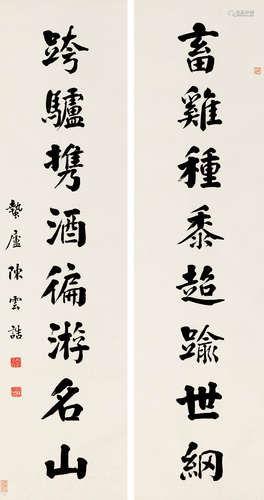 畜雞種黍超踰世網
跨驢攜酒徧游名山
蟄廬陳雲誥